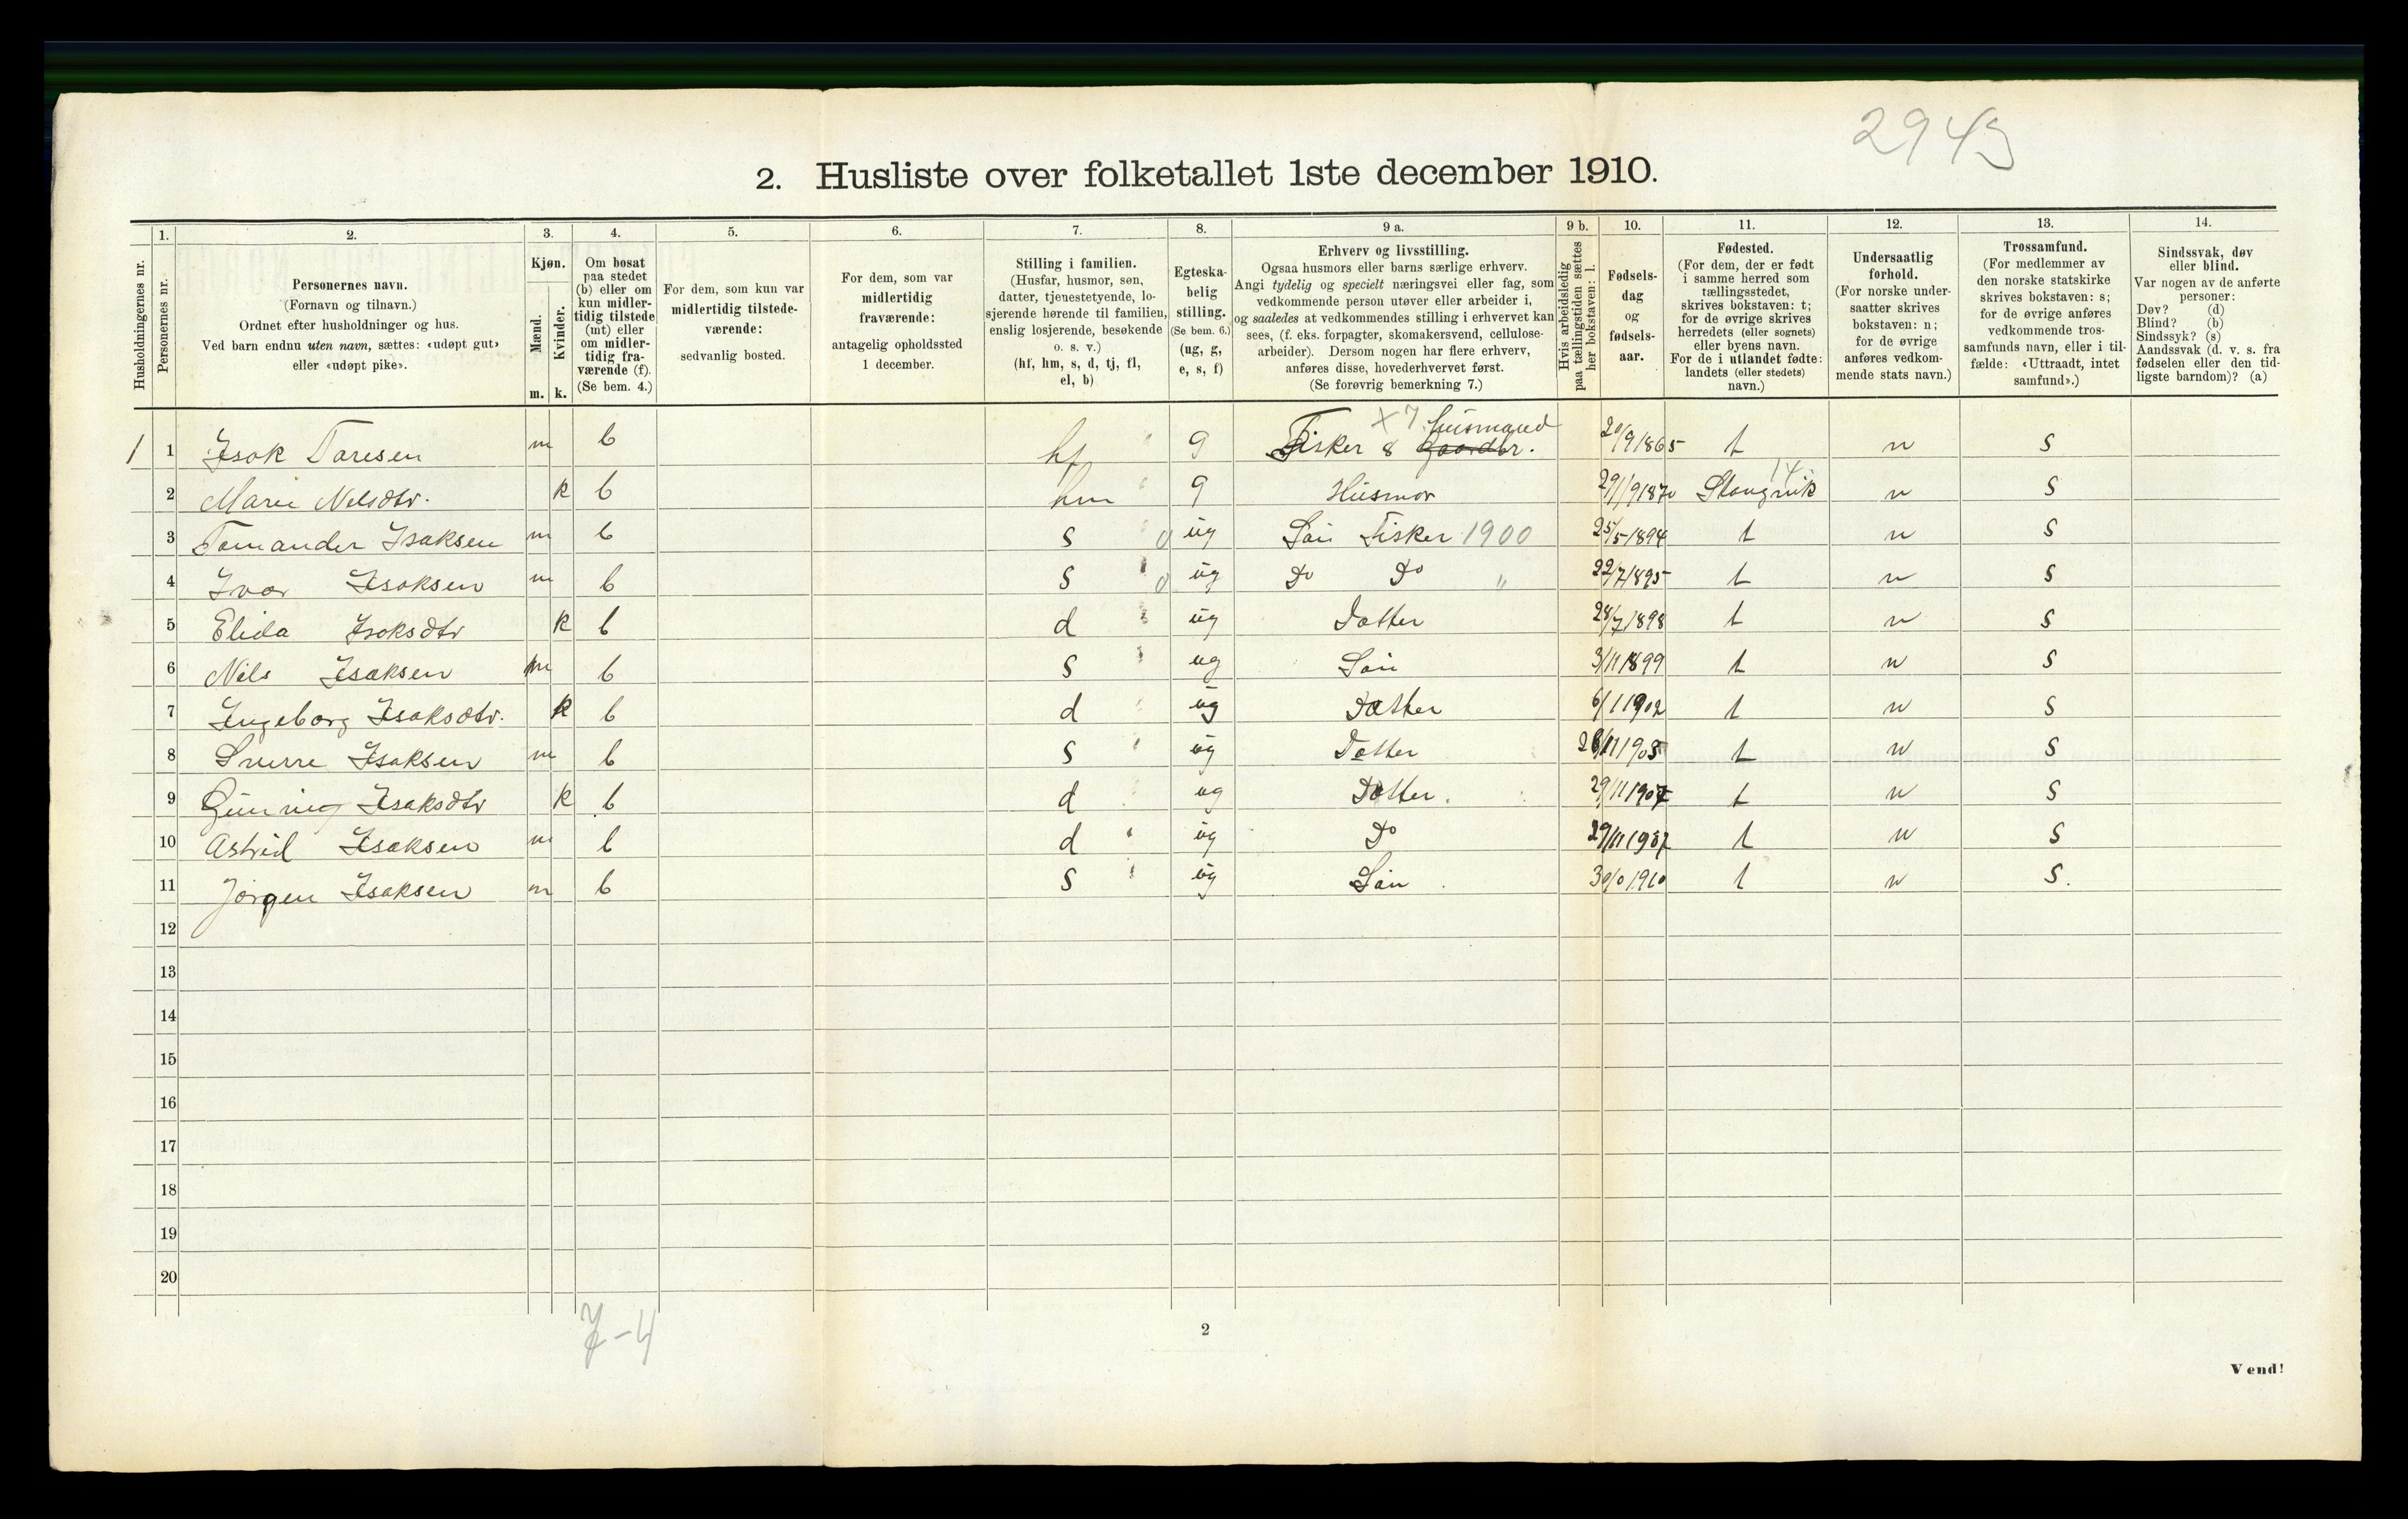 2943
2. Husliste over folketallet 1ste december 1910.
Husholdningernes nr.
1.
Personernes nr.
2.
Personernes navn.
(Fornavn og tilnavn.)
Ordnet efter husholdninger og hus.
Ved barn endnu uten navn, sættes: «udøpt gut»
eller «udøpt pike».
3.
Kjøn.
Mænd.
Kvinder.
m. k.
4.
Om bosat
paa stedet
(b) eller om
kun midler-
tidig tilstede
(mt) eller
om midler-
tidig fra-
værende (f).
(Se bem. 4.)
5.
For dem, som kun var
midlertidig tilstede-
værende:
sedvanlig bosted.
6.
For dem, som var
midlertidig
fraværende:
antagelig opholdssted
1 december.
7.
Stilling i familien.
(Husfar, husmor, søn,
datter, tjenestetyende, lo-
sjerende hørende til familien,
enslig losjerende, besøkende
o. s. v.)
(hf, hm, s, d, tj, fl,
el, b)
8.
Egteska-
belig
stilling.
(Se bem. 6.)
(ug, g,
e, s, f)
9 a.
Erhverv og livsstilling.
Ogsaa husmors eller barns særlige erhverv.
Angi tydelig og specielt næringsvei eller fag, som
vedkommende person utøver eller arbeider i,
og saaledes at vedkommendes stilling i erhvervet kan
sees, (f. eks. forpagter, skomakersvend, cellulose-
arbeider). Dersom nogen har flere erhverv,
anføres disse, hovederhvervet først.
(Se forøvrig bemerkning 7.)
9 b.
Hvis arbeidsledig
paa tællingstiden sættes
her bokstaven: l.
10.
Fødsels-
dag
og
fødsels-
aar.
11.
Fødested.
(For dem, der er født
i samme herred som
tællingsstedet,
skrives bokstaven: t;
for de øvrige skrives
herredets (eller sognets)
eller byens navn.
For de i utlandet fødte:
landets (eller stedets)
navn.)
12.
Undersaatlig
forhold.
(For norske under-
saatter skrives
bokstaven: n;
for de øvrige
anføres vedkom-
mende stats navn.)
13.
Trossamfund.
(For medlemmer av
den norske statskirke
skrives bokstaven: s;
for de øvrige anføres
vedkommende tros-
samfunds navn, eller i til-
fælde: «Uttraadt, intet
samfund».)
14.
Sindssvak, døv
eller blind.
Var nogen av de anførte
personer:
Døv? (d)
Blind? (b)
Sindssyk? (s)
Aandssvak (d. v. s. fra
fødselen eller den tid-
ligste barndom)? (a)
X 7. husmand
1 1 Isak Taresen m b hf g Fisker & Gaardbr. 20/9 1865 t n s
14
2 Marie Nelsdtr. k b hm g Husmor 29/9 1870 Stangvik n s
3 Tomander Isaksen m b s ug Søn Fisker 1900 25/5 1894 t n s
4 Ivar Isaksen m b s ug Do Do " 22/7 1895 t n s
5 Elida Isaksdtr k b d ug Datter 28/7 1898 t n s
6 Nils Isaksen m b s ug Søn 3/11 1899 t n s
7 Ingeborg Isaksdtr. k b d ug Datter 6/1 1902 t n s
8 Sverre Isaksen m b s ug Datter t n s
9 Isaksdtr k b d ug Datter. 29/11 1907 t n s
10 Astrid Isaksen m b d ug Do 29/11 1907 t n s
11 Jørgen Isaksen m b s ug Søn 1910 t n s.
12
13
14
15
16
17
18
19
20
7-4
2
Vend!